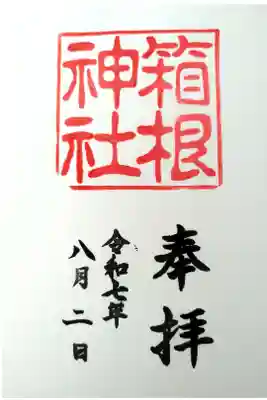 箱根
神社
奉拝
令和七年
八月二日